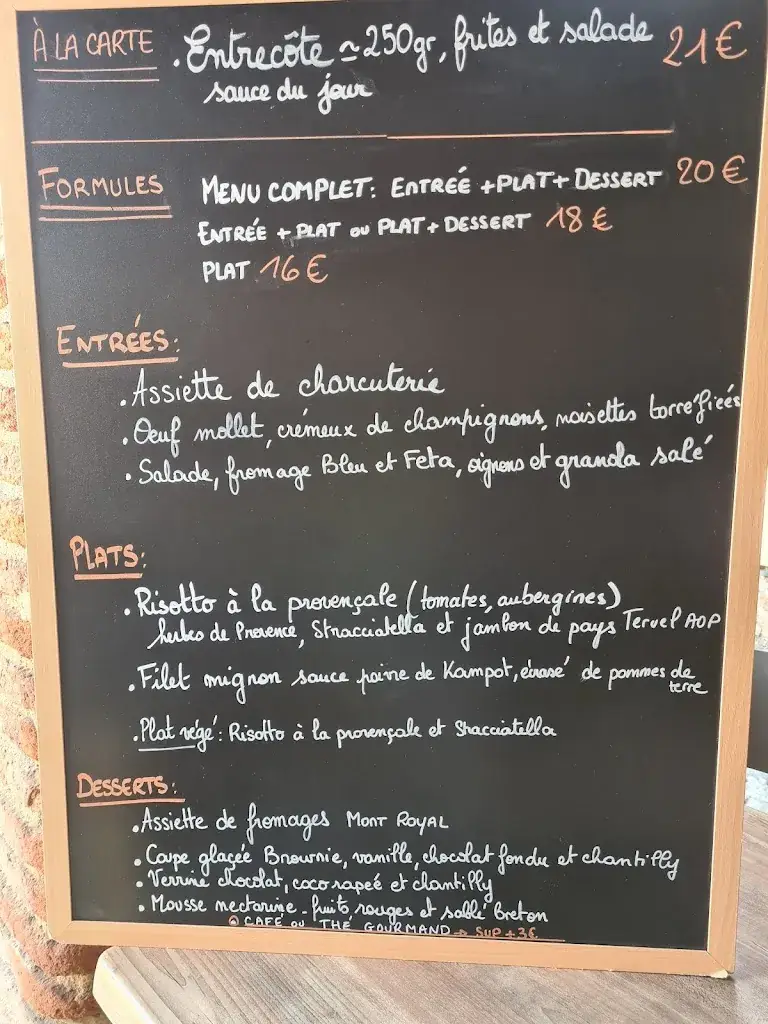 À LA CARTE . Entrecôte ≃ 250gr, frites et salade 21€
sauce du jour
FORMULES MENU COMPLET: ENTRÉE + PLAT + DESSERT 20€
ENTRÉE + PLAT OU PLAT + DESSERT 18€
PLAT 16€
ENTRÉES:
. Assiette de charcuterie
. Oeuf mollet, crémeux de champignons, noisettes torréfiées
. Salade, fromage Bleu et Feta, oignons et granola salé
PLATS:
. Risotto à la provençale (tomates, aubergines)
herbes de Provence, Stracciatella et jambon de pays Teruel AOP
. Filet mignon sauce poivre de Kampot, écrasé de pommes de
terre
. Plat végé: Risotto à la provençale et Stracciatella
DESSERTS:
. Assiette de fromages MONT ROYAL
. Coupe glaçée Brownie, vanille, chocolat fondu et chantilly
. Verrine chocolat, coco rapeé et chantilly
. Mousse nectarine - fruits rouges et sablé Breton
CAFÉ OU THÉ GOURMAND → SUP +3€